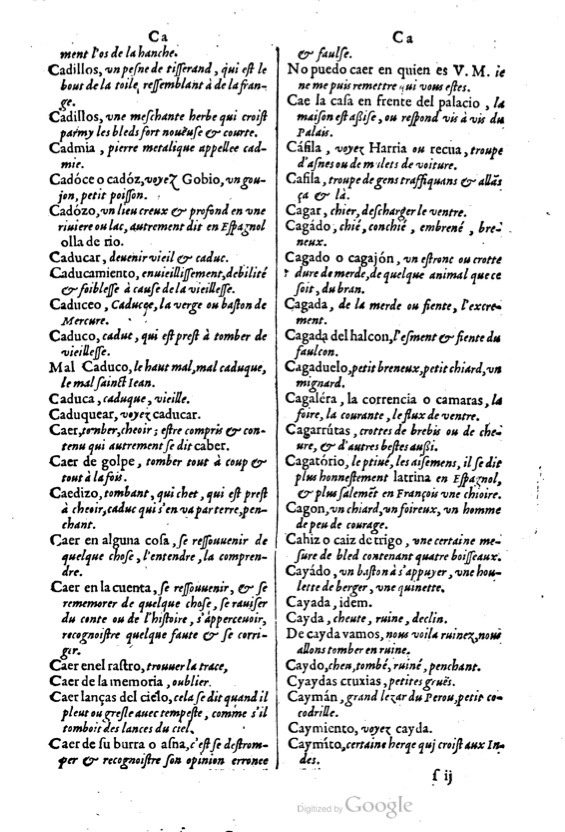 Ca
ment l'os de la hanche.
Cadillos, vn peſne de tiſſerand, qui eſt le
bout de la toile, reſſemblant à de la fran-
ge.
Cadillos, vne meſchante herbe qui croiſt
parmy les bleds fort noüeuſe & courte.
Cadmia, pierre metalique appellee cad-
mie.
Cadóce o cadóz, voyez Gobio, vn gou-
jon, petit poiſſon.
Cadózo, vn lieu creux & profond en vne
riuiere ou lac, autrement dit en Eſpagnol
olla de rio.
Caducar, deuenir vieil & caduc.
Caducamiento, enuieilliſſement, debilité
& foibleſſe à cauſe de la vieilleſſe.
Caduceo, Caducee, la verge ou baſton de
Mercure.
Caduco, caduc, qui eſt preſt à tomber de
vieilleſſe.
Mal Caduco, le haut mal, mal caduque,
le mal ſainct Iean.
Caduca, caduque, vieille.
Caduquear, voyez caducar.
Caer, tomber, cheoir; eſtre compris & con-
tenu qui autrement ſe dit caber.
Caer de golpe, tomber tout à coup &
tout à la fois.
Caedizo, tombant, qui chet, qui eſt preſt
à cheoir, caduc qui s'en va par terre, pen-
chant.
Caer en alguna coſa, ſe reſſouuenir de
quelque choſe, l'entendre, la compren-
dre.
Caer en la cuenta, ſe reſſouuenir, & ſe
rememorer de quelque choſe, ſe rauiſer
du conte ou de l'hiſtoire, s'apperceuoir,
recognoiſtre quelque faute & ſe corri-
ger.
Caer en el raſtro, trouuer la trace,
Caer de la memoria, oublier.
Caer lanças del cielo, cela ſe dit quand il
pleut ou greſle auec tempeſte, comme s'il
tomboit des lances du ciel.
Caer de ſu burra o aſna, c'eſt ſe deſtrom-
per & recognoiſtre ſon opinion erronee
Ca
& faulſe.
No puedo caer en quien es V. M. ie
ne me puis remettre qui vous eſtes.
Cae la caſa en frente del palacio, la
maiſon eſt aßiſe, ou reſpond vis à vis du
Palais.
Cáfila, voyez Harria ou recua, troupe
d'aſnes ou de mulets de voiture.
Cafila, troupe de gens traffiquans & allās
ça & là.
Cagar, chier, deſcharger le ventre.
Cagádo, chié, conchié, embrené, bre-
neux.
Cagado o cagajón, vn eſtronc ou crotte
dure de merde, de quelque animal que ce
ſoit, du bran.
Cagada, de la merde ou fiente, l'excre-
ment.
Cagada del halcon, l'eſment & fiente du
faulcon.
Cagaduelo, petit breneux, petit chiard, vn
mignard.
Cagaléra, la correncia o camaras, la
foire, la courante, le flux de ventre.
Cagarrútas, crottes de brebis ou de che-
ure, & d'autres beſtes außi.
Cagatório, le priué, les aiſemens, il ſe dit
plus honneſtement latrina en Eſpagnol,
& plus ſalemēt en François vne chioire.
Cagon, vn chiard, vn foireux, vn homme
de peu de courage.
Cahiz o caiz de trigo, vne certaine me-
ſure de bled contenant quatre boiſſeaux.
Cayádo, vn baſton à s'appuyer, vne hou-
lette de berger, vne quinette.
Cayada, idem.
Cayda, cheute, ruine, declin.
De cayda vamos, nous voila ruinez, nous
allons tomber en ruine.
Caydo, cheu, tombé, ruiné, penchant.
Cyaydas cruxias, petites gruës.
Caymán, grand lezar du Perou, petit co-
codrille.
Caymiento, voyez cayda.
Caymíto, certaine herqe quj croiſt aux In-
des.
ſ ij
Digitized by Google